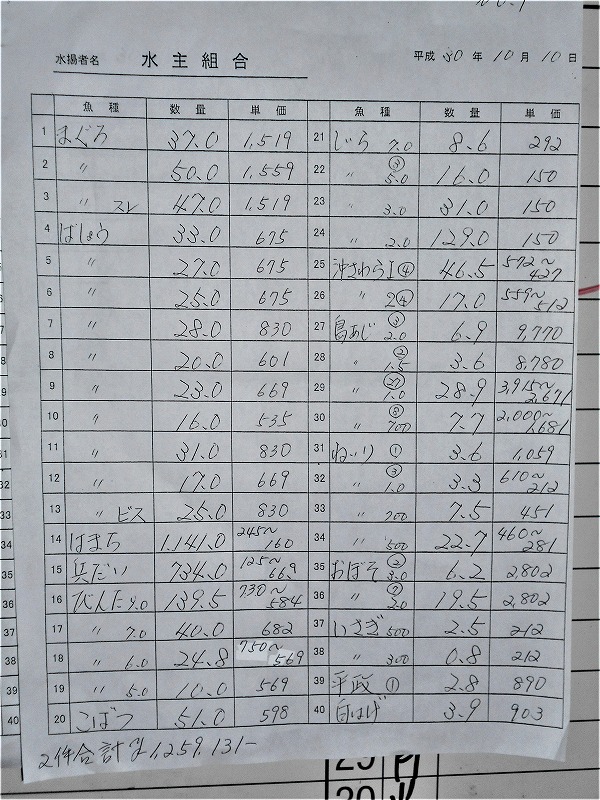 水揚者名 水主組合 平成 30 年 10 月 10 日
魚種 数量 単価 魚種 数量 単価
1 まぐろ 37.0 1,519 21 しいら 7.0 8.6 292
2 〃 50.0 1,559 22 〃 ③ 5.0 16.0 150
3 〃 スレ 47.0 1,519 23 〃 3.0 31.0 150
4 ばしょう 33.0 675 24 〃 2.0 129.0 150
5 〃 27.0 675 25 沖さわら1④ 46.5 572〜427
6 〃 25.0 675 26 〃 2④ 17.0 559〜512
7 〃 28.0 830 27 島あじ ③ 2.0 6.9 9,770
8 〃 20.0 601 28 〃 ② 1.5 3.6 8,780
9 〃 23.0 669 29 〃 ㉗ 1.0 28.9 3,915〜2,671
10 〃 16.0 535 30 〃 ⑧ 700 7.7 2,000〜1,681
11 〃 31.0 830 31 ① 3.6 1,059
12 〃 17.0 669 32 〃 ③ 1.0 3.3 610〜212
13 〃 ビス 25.0 830 33 〃 700 7.5 451
14 はまち 1,141.0 245〜160 34 〃 500 22.7 460〜281
15 兵だい 734.0 125〜66.9 35 おぼそ ② 3.0 6.2 2,802
16 びんた 9.0 139.5 730〜584 36 〃 2.0 19.5 2,802
17 〃 7.0 40.0 682 37 いさぎ 500 2.5 212
18 〃 6.0 24.8 750〜569 38 〃 300 0.8 212
19 〃 5.0 10.0 569 39 平政 ① 2.8 890
20 こぼつ 51.0 598 40 白はげ 3.9 903
2件合計 ¥1,259,131-